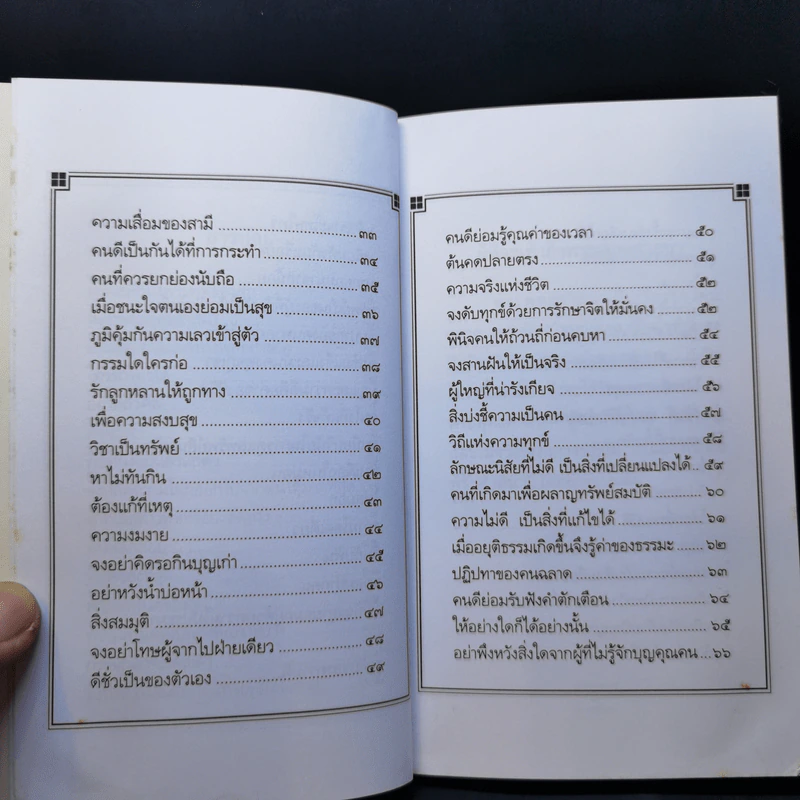 ความเสื่อมของสามี ................................ ๓๓
คนดีเป็นกันได้ที่การกระทำ ........................ ๓๔
คนที่ควรยกย่องนับถือ ............................ ๓๕
เมื่อชนะใจตนเองย่อมเป็นสุข ...................... ๓๖
ภูมิคุ้มกันความเลวเข้าสู่ตัว ........................ ๓๗
กรรมใดใครก่อ .................................... ๓๘
รักลูกหลานให้ถูกทาง ............................. ๓๙
เพื่อความสงบสุข ................................. ๔๐
วิชาเป็นทรัพย์ .................................... ๔๑
หาไม่ทันกิน ...................................... ๔๒
ต้องแก้ที่เหตุ ..................................... ๔๓
ความงมงาย ...................................... ๔๔
จงอย่าคิดรอกินบุญเก่า ........................... ๔๕
อย่าหวังน้ำบ่อหน้า ............................... ๔๖
สิ่งสมมุติ ........................................ ๔๗
จงอย่าโทษผู้จากไปฝ่ายเดียว ...................... ๔๘
ดีชั่วเป็นของตัวเอง ............................... ๔๙
คนดีย่อมรู้คุณค่าของเวลา ......................... ๕๐
ต้นคดปลายตรง ................................... ๕๑
ความจริงแห่งชีวิต ................................ ๕๒
จงดับทุกข์ด้วยการรักษาจิตให้มั่นคง ................ ๕๒
พินิจคนให้ถ้วนถี่ก่อนคบหา ........................ ๕๔
จงสานฝันให้เป็นจริง .............................. ๕๕
ผู้ใหญ่ที่น่ารังเกียจ ................................ ๕๖
สิ่งบ่งชี้ความเป็นคน .............................. ๕๗
วิถีแห่งความทุกข์ ................................. ๕๘
ลักษณะนิสัยที่ไม่ดี เป็นสิ่งที่เปลี่ยนแปลงได้ .. ๕๙
คนที่เกิดมาเพื่อผลาญทรัพย์สมบัติ ................. ๖๐
ความไม่ดี เป็นสิ่งที่แก้ไขได้ ........................ ๖๑
เมื่ออยุติธรรมเกิดขึ้นจึงรู้ค่าของธรรมะ ............ ๖๒
ปฏิปทาของคนฉลาด ............................... ๖๓
คนดีย่อมรับฟังคำตักเตือน ......................... ๖๔
ให้อย่างใดก็ได้อย่างนั้น ........................... ๖๕
อย่าพึงหวังสิ่งใดจากผู้ที่ไม่รู้จักบุญคุณคน ... ๖๖